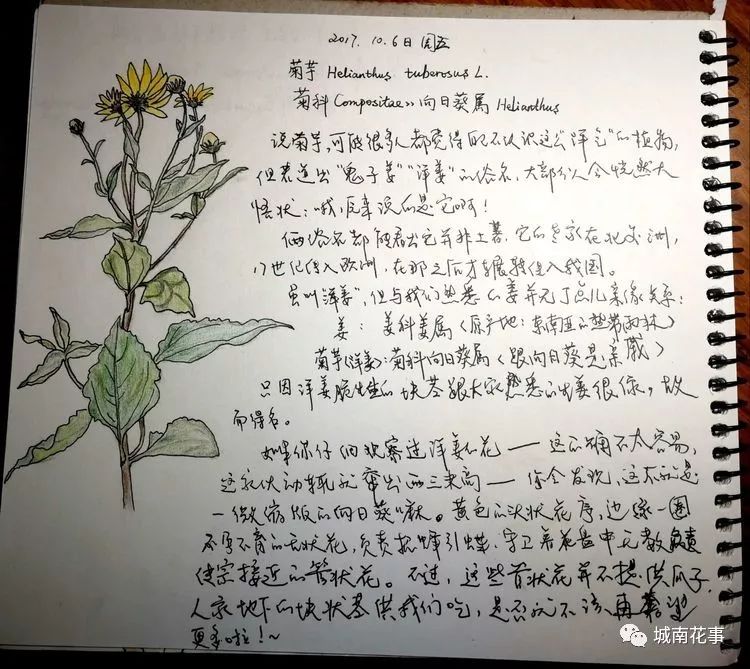 2017. 10. 6日 周五
菊芋 Helianthus tuberosus L.
菊科 Compositae>> 向日葵属 Helianthus
说菊芋,可能很多人都觉得 不认识这么"洋气"的植物,
但若道出"鬼子姜""洋姜"的俗名,大部分人会恍然大
悟状:哦,原来说的是它啊!
俩俗名都能看出它并非土著,它的老家在北美洲,
17世纪传入欧洲,在那之后才辗转传入我国。
虽叫"洋姜",但与我们熟悉的姜并无丁点儿亲缘关系:
姜:姜科姜属(原产地:东南亚的热带雨林)
菊芋(洋姜):菊科向日葵属(跟向日葵是亲戚)
只因洋姜脆生生的块茎跟大家熟悉的生姜很像,故
而得名。
如果你仔细观察过洋姜的花——这的确不太容易,
这家伙动辄就窜出两三米高——你会发现,这不就是
一微缩版的向日葵嘛。黄色的头状花序,边缘一圈
不孕不育的舌状花,负责招蜂引蝶,守卫着花盘中无数负责
传宗接 的管状花。不过,这些管状花并不提供瓜子,
人家地下的块状茎供我们吃,是否就不该再奢望
更多啦!~
城南花事